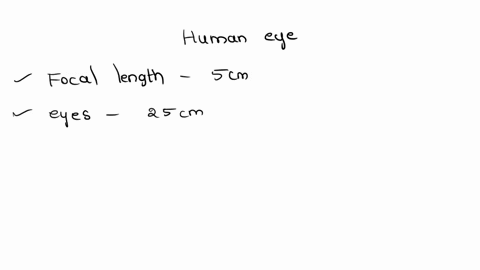 Human eye
✓ Focal length - 5cm
✓ eyes - 25cm